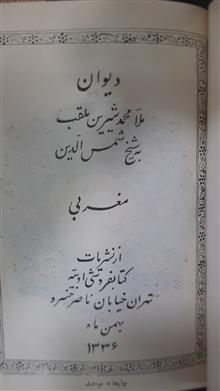 دیوان
ملا محمد شیرین ملقب
به شیخ شمس الدین
مغربی
از نشریات
کتابفروشی ادبیه
تهران خیابان ناصر خسرو
بهمن ماه
۱۳۳۶